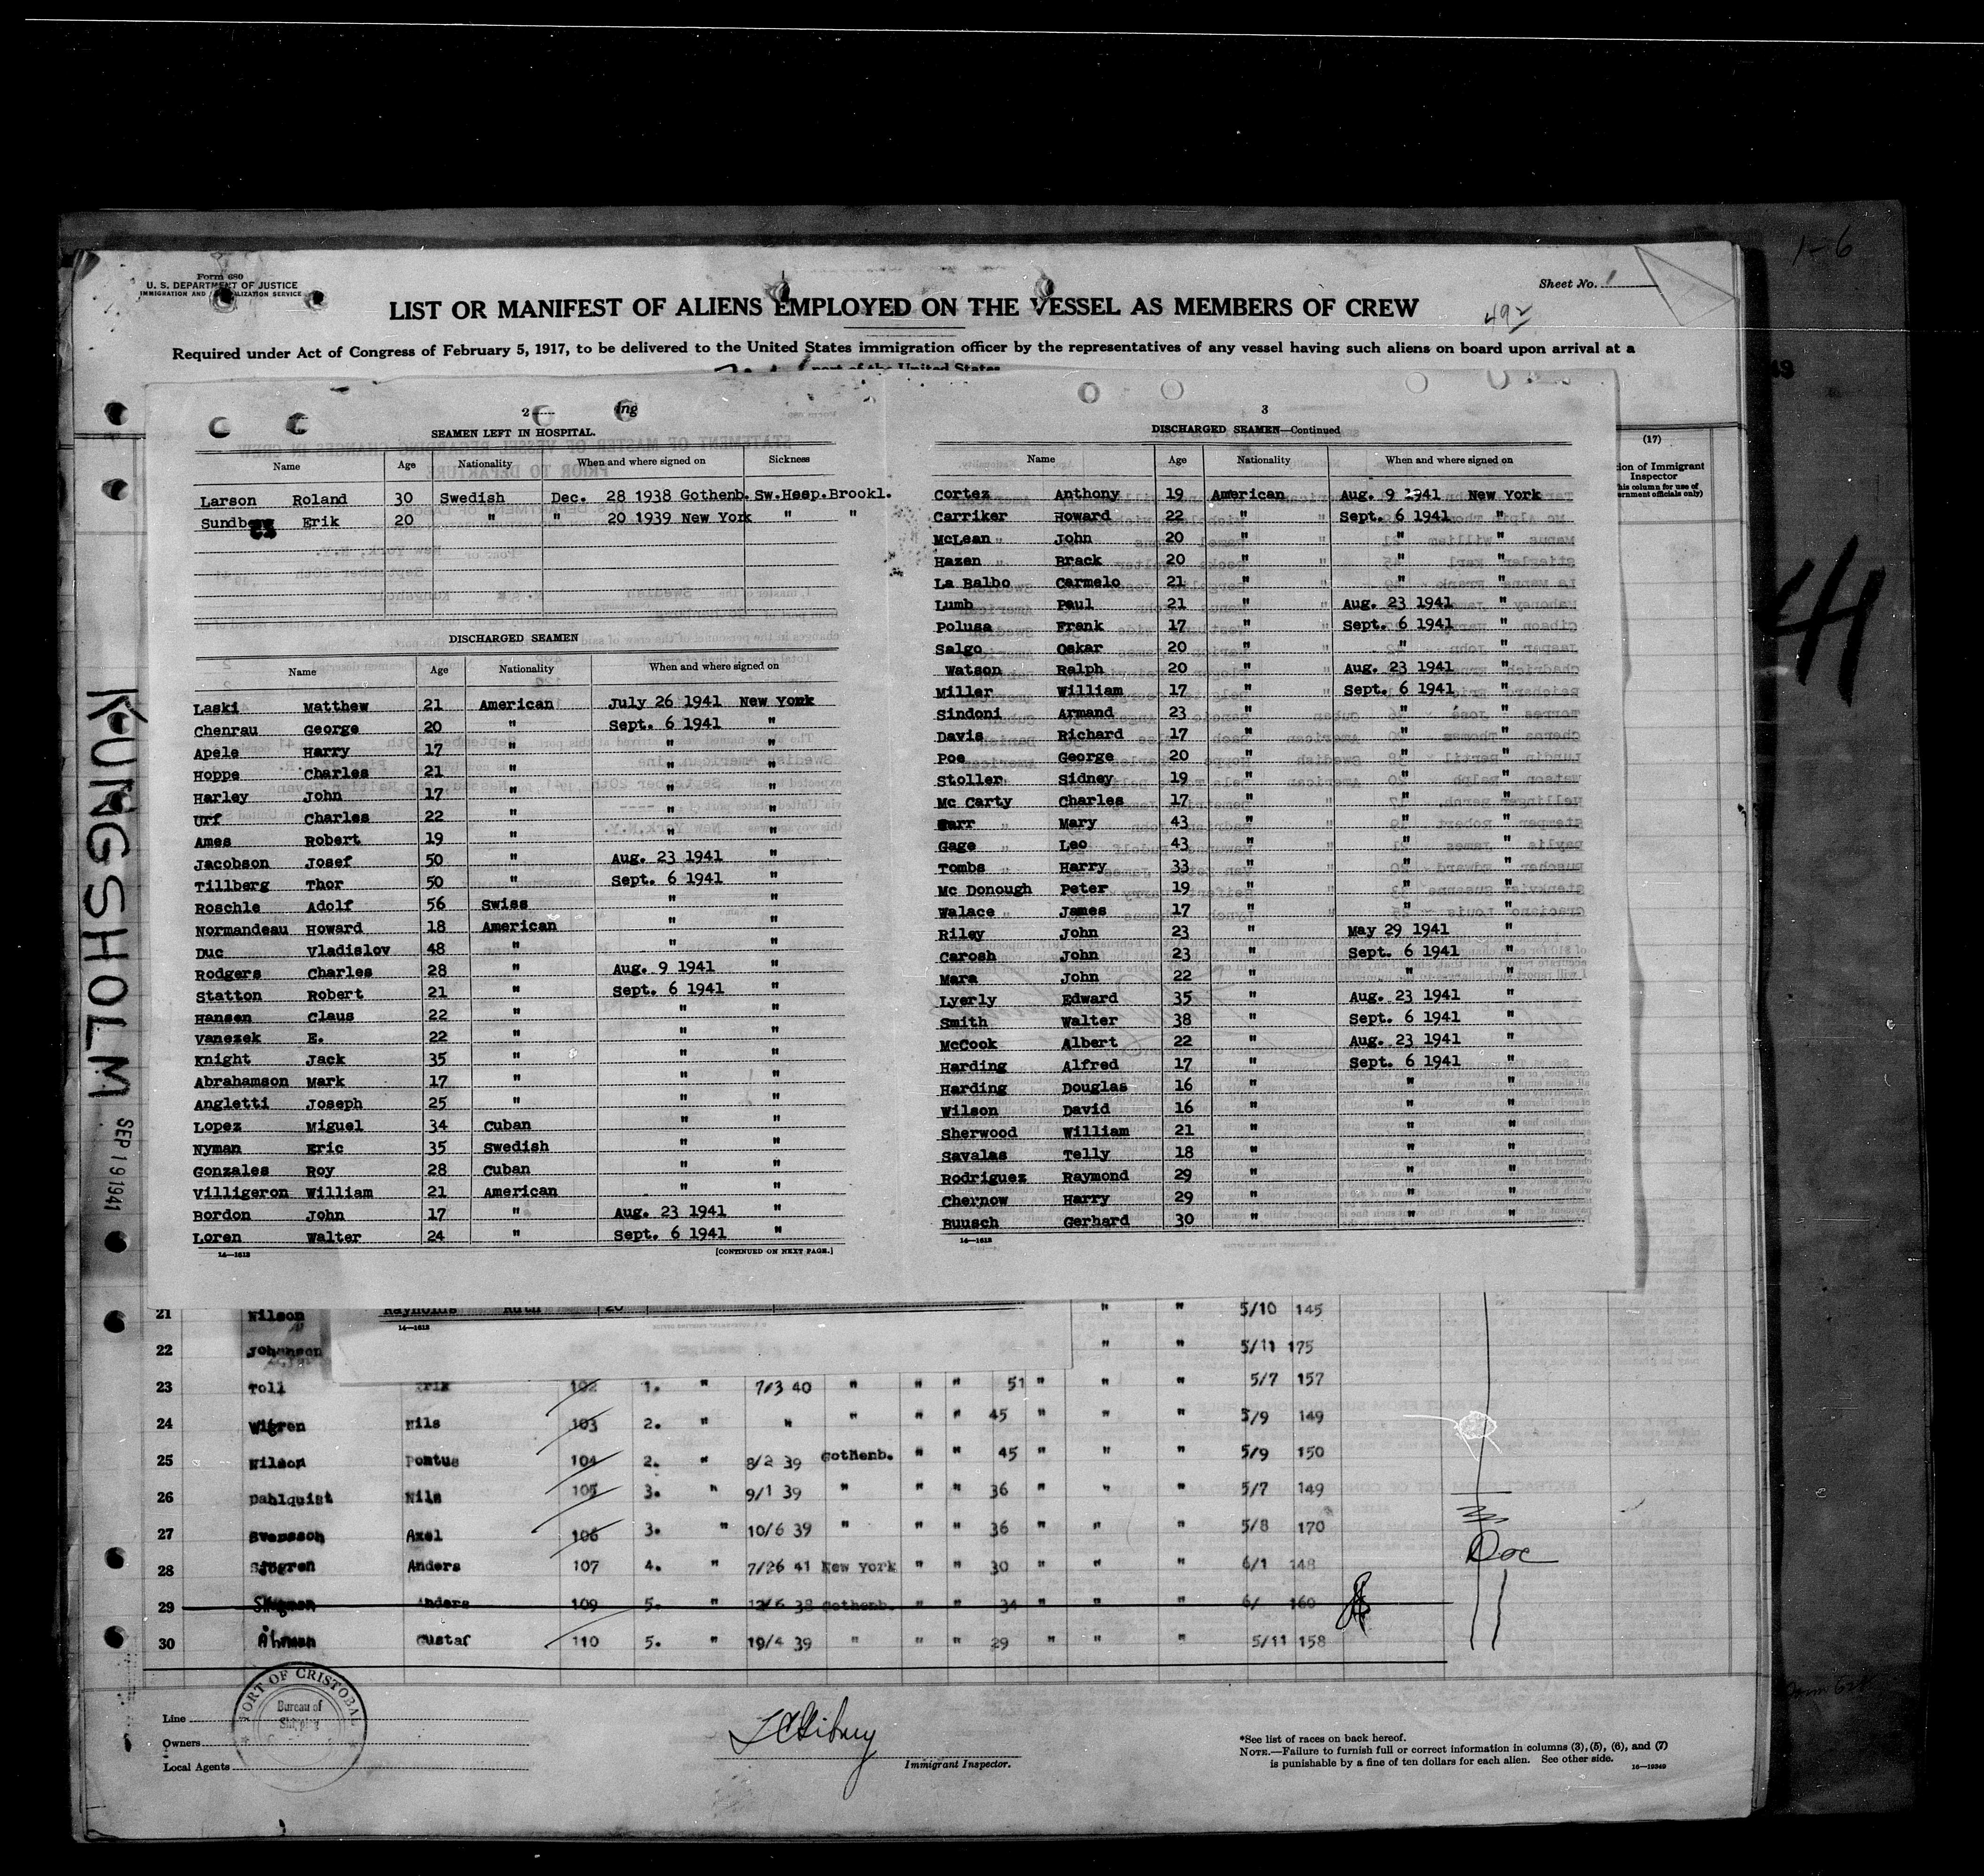 1-6
Form 680
U. S. DEPARTMENT OF JUSTICE
IMMIGRATION AND NATURALIZATION SERVICE
Sheet No. 1
LIST OR MANIFEST OF ALIENS EMPLOYED ON THE VESSEL AS MEMBERS OF CREW
492
Required under Act of Congress of February 5, 1917, to be delivered to the United States immigration officer by the representatives of any vessel having such aliens on board upon arrival at a
port of the United States
KUNGSHOLM
SEP 19 1941
2
ing
SEAMEN LEFT IN HOSPITAL.
Name Age Nationality When and where signed on Sickness
Larson Roland 30 Swedish Dec. 28 1938 Gothenb. Sw.Hosp.Brookl.
Sundberg Erik 20 " " 20 1939 New York " "
DISCHARGED SEAMEN
Name Age Nationality When and where signed on
Laski Matthew 21 American July 26 1941 New York
Chenrau George 20 " Sept. 6 1941 "
Apele Harry 17 " " "
Hoppe Charles 21 " " "
Harley John 17 " " "
Urf Charles 22 " " "
Ames Robert 19 " " "
Jacobson Josef 50 " Aug. 23 1941 "
Tillberg Thor 50 " Sept. 6 1941 "
Roschle Adolf 56 Swiss " "
Normandeau Howard 18 American " "
Duc Vladislov 48 " " "
Rodgers Charles 28 " Aug. 9 1941 "
Statton Robert 21 " Sept. 6 1941 "
Hansen Claus 22 " " "
Vanezek E. 22 " " "
Knight Jack 35 " " "
Abrahamson Mark 17 " " "
Angletti Joseph 25 " " "
Lopez Miguel 34 Cuban " "
Nyman Eric 35 Swedish " "
Gonzales Roy 28 Cuban " "
Villigeron William 21 American " "
Bordon John 17 " Aug. 23 1941 "
Loren Walter 24 " Sept. 6 1941 "
14—1612 [CONTINUED ON NEXT PAGE.]
3
DISCHARGED SEAMEN—Continued
Name Age Nationality When and where signed on
Cortez Anthony 19 American Aug. 9 1941 New York
Carriker Howard 22 " Sept. 6 1941 "
McLean John 20 " " "
Hazen Brack 20 " " "
La Balbo Carmelo 21 " " "
Lumb Paul 21 " Aug. 23 1941 "
Polusa Frank 17 " Sept. 6 1941 "
Salgo Oskar 20 " " "
Watson Ralph 20 " Aug. 23 1941 "
Miller William 17 " Sept. 6 1941 "
Sindoni Armand 23 " " "
Davis Richard 17 " " "
Poe George 20 " " "
Stoller Sidney 19 " " "
Mc Carty Charles 17 " " "
Mary 43 " " "
Gage Leo 43 " " "
Tombs Harry 33 " " "
Mc Donough Peter 19 " " "
Walace James 17 " " "
Riley John 23 " May 29 1941 "
Carosh John 23 " Sept. 6 1941 "
Mara John 22 " " "
Lyerly Edward 35 " Aug. 23 1941 "
Smith Walter 38 " Sept. 6 1941 "
McCook Albert 22 " Aug. 23 1941 "
Harding Alfred 17 " Sept. 6 1941 "
Harding Douglas 16 " " "
Wilson David 16 " " "
Sherwood William 21 " " "
Savalas Telly 18 " " "
Rodriguez Raymond 29 " " "
Chernow Harry 29 " " "
Buusch Gerhard 30 " " "
14—1612
(17)
tion of Immigrant
Inspector
(his column for use of
ernment officials only)
Raynolds Ruth 20
14—1612
21 Wilson " " 5/10 145
22 Johanson " " 5/11 175
23 Toll Erik 102 1. " 7/3 40 " " " 51 " " " 5/7 157
24 Wigren Nils 103 2. " " " " " 45 " " " 5/9 149
25 Nilson Pontus 104 2. " 8/2 39 Gothenb. " " 45 " " " 5/9 150
26 Dahlquist Nils 105 3. " 9/1 39 " " " 36 " " " 5/7 149
27 Svensson Axel 106 3. " 10/6 39 " " " 36 " " " 5/8 170
28 Sjögren Anders 107 4. " 7/26 41 New York " " 30 " " " 6/1 148
29 Anders 109 5. " 12/6 38 Gothenb. " " 34 " " " 6/ 160
30 Åhman Gustaf 110 5. " 10/4 39 " " " 29 " " " 5/11 158
PORT OF CRISTOBAL
Bureau of
Shipping
Line
Owners
Local Agents
Immigrant Inspector.
*See list of races on back hereof.
NOTE.—Failure to furnish full or correct information in columns (3), (5), (6), and (7)
is punishable by a fine of ten dollars for each alien. See other side.
16—19349